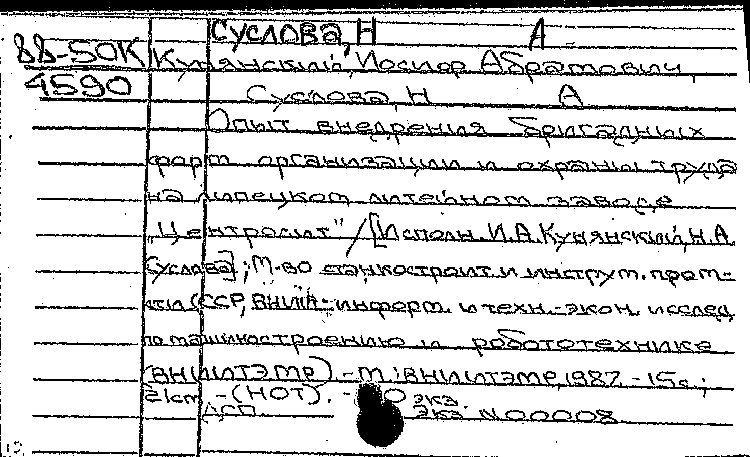 Суслова, Н А
88-50К Кунянский, Иосиф Абрамович,
4590 Суслова, Н А
Опыт внедрения бригадных
форм организации и охраны труда
на Липецком литейном заводе
"Центролит" / [Исполн. И.А. Кунянский, Н.А.
Суслова]; М-во станкостроит и инструм. пром-
сти СССР, ВНИИ информ. и техн.-экон. исслед
по машиностроению и робототехнике
(ВНИИТЭМР). - М: ВНИИТЭМР, 1987. - 15с;
21см. - (НОТ). - экз
ДСП экз N 00008